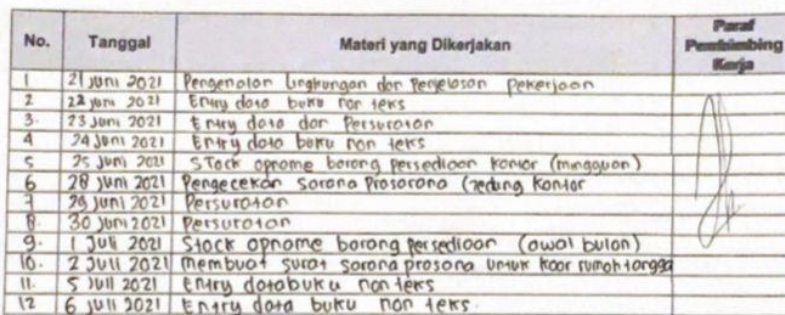 No. Tanggal Materi yang Dikerjakan Paraf Pembimbing Kerja
1 21 Juni 2021 Pengenalan lingkungan dan Penjelasan pekerjaan
2 22 Juni 2021 Entry data buku non teks
3. 23 Juni 2021 Entry data dan Persuratan
4 24 Juni 2021 Entry data buku non teks
5 25 Juni 2021 STock opname barang persediaan kantor (mingguan)
6 28 Juni 2021 Pengecekan sarana Prasarana (Gedung Kantor
7 29 Juni 2021 Persuratan
8. 30 Juni 2021 Persuratan
9. 1 Juli 2021 Stock opname barang persediaan (awal bulan)
10. 2 Juli 2021 membuat surat sarana prasana untuk koor rumah tangga
11. 5 Juli 2021 Entry databuku non teks
12 6 Juli 2021 Entry data buku non teks.